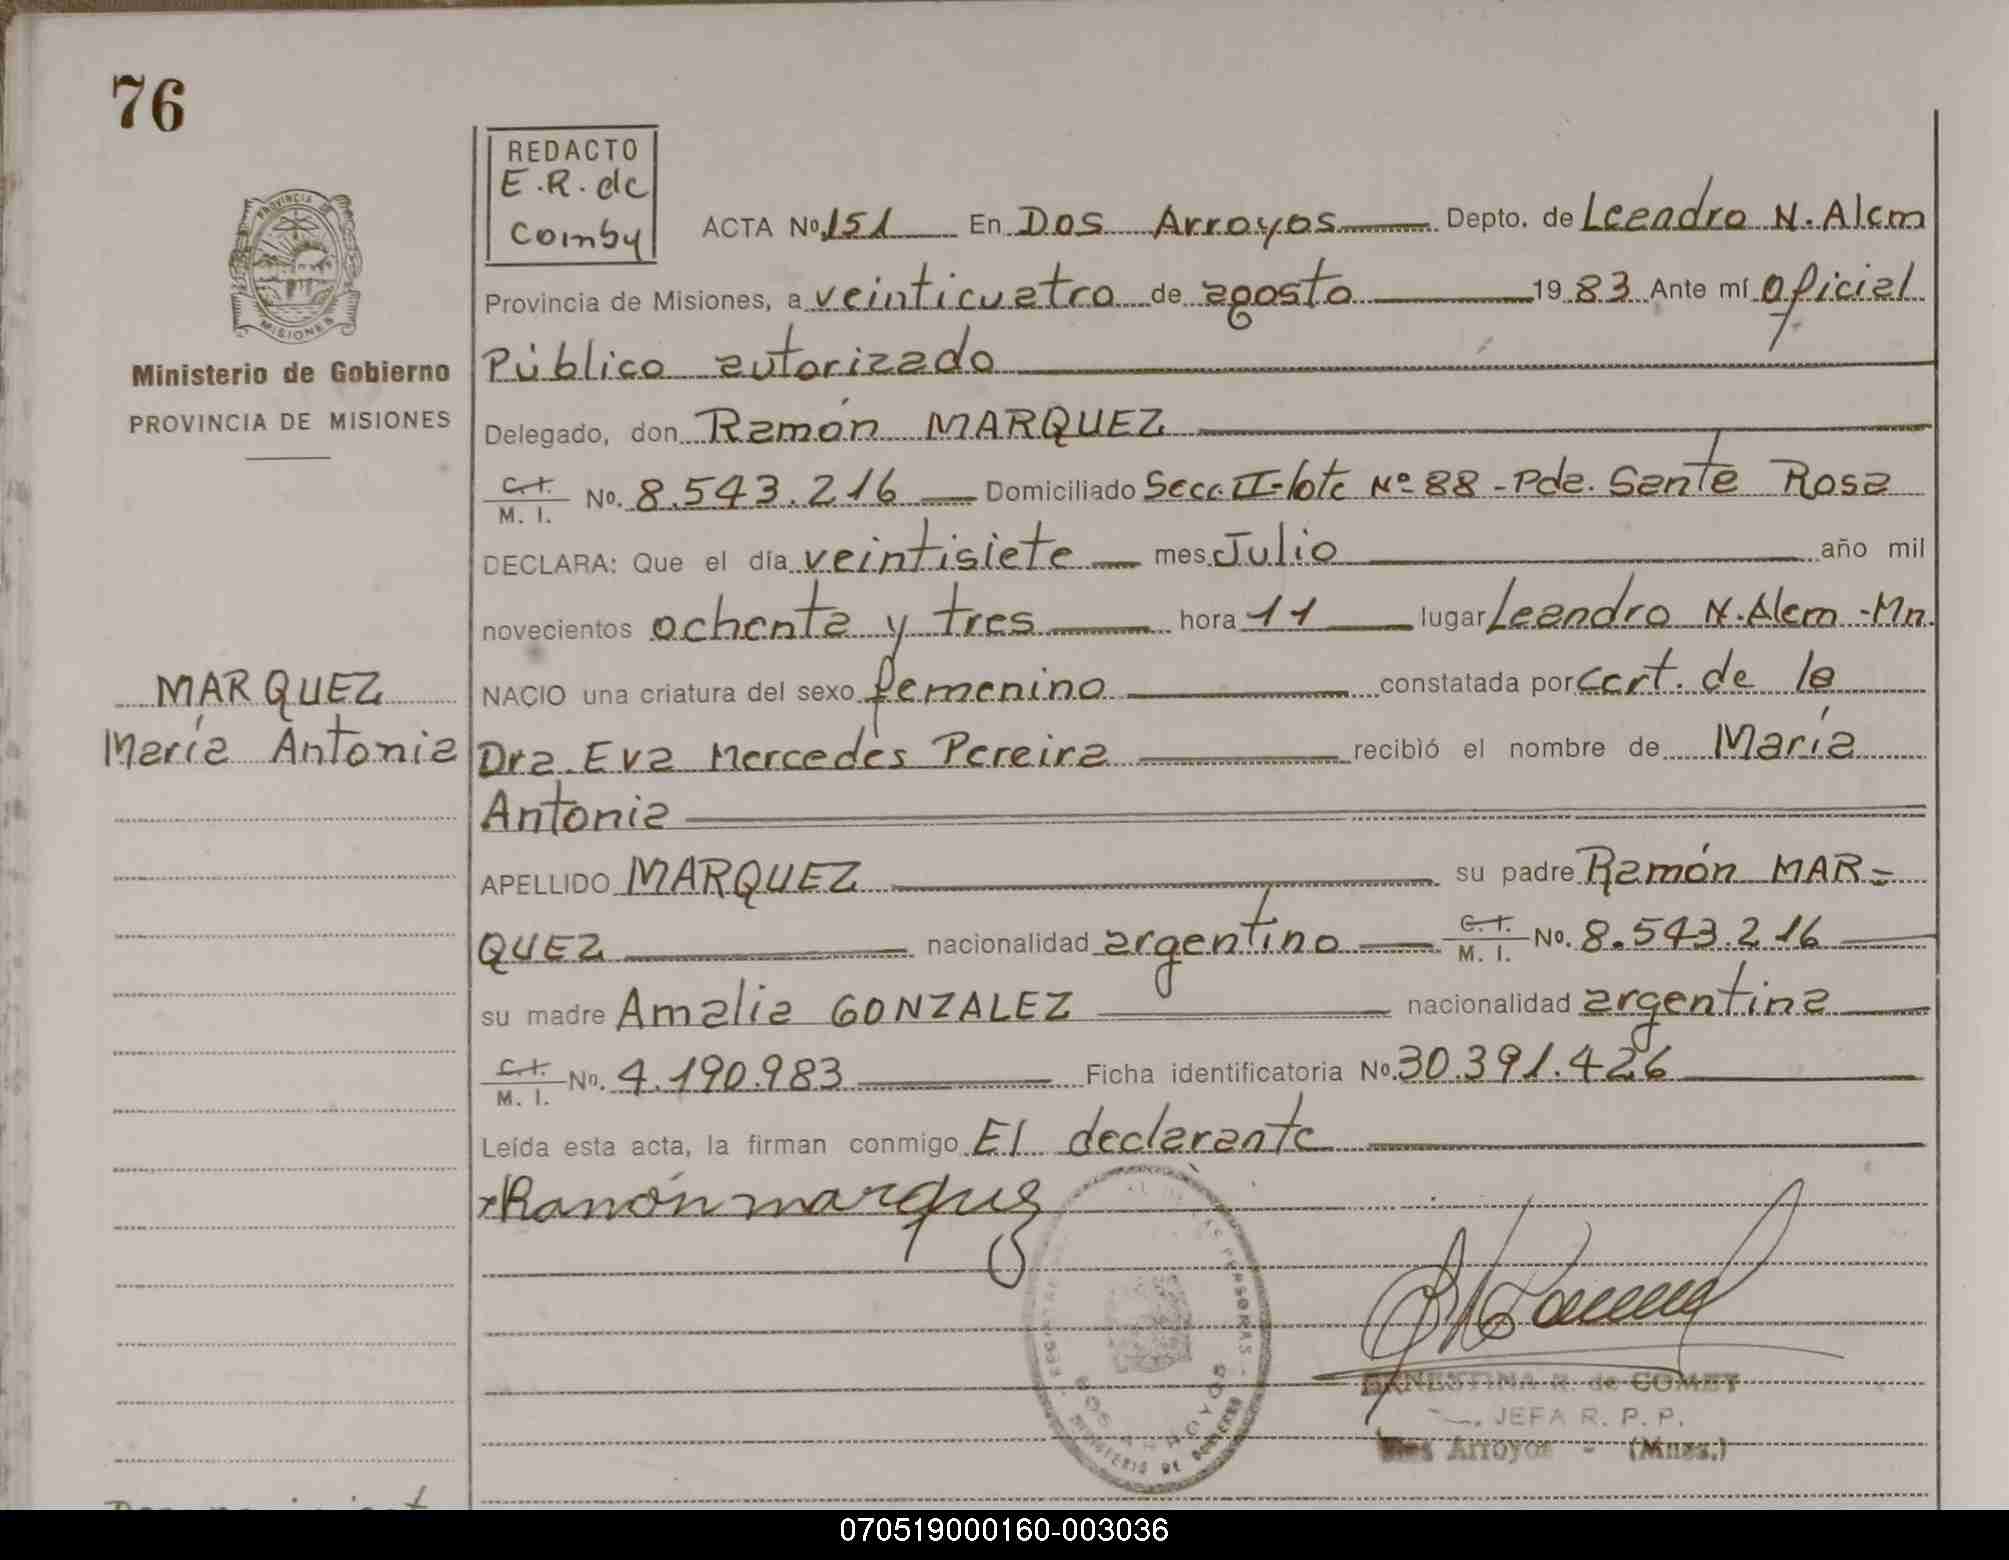 76
REDACTO
E.R. de
Comby
ACTA Nº 151 En Dos Arroyos Depto. de Leandro N. Alem
Provincia de Misiones, a veinticuatro de agosto 1983 Ante mí Oficial
Público autorizado
Ministerio de Gobierno
PROVINCIA DE MISIONES
Delegado, don Ramón MARQUEZ
C. I.
M. I. No. 8.543.216 Domiciliado Secc. II-lote Nº 88 - Pde. Santa Rosa
DECLARA: Que el día veintisiete mes Julio año mil
novecientos ochenta y tres hora 11 lugar Leandro N. Alem -Mn.
NACIO una criatura del sexo femenino constatada por cert. de la
MARQUEZ
María Antonia
Dra. Eva Mercedes Pereira recibió el nombre de María
Antonia
APELLIDO MARQUEZ su padre Ramón MAR=
QUEZ nacionalidad argentino C. I.
M. I. No. 8.543.216
su madre Amalia GONZALEZ nacionalidad argentina
C. I.
M. I. No. 4.190.983 Ficha identificatoria No. 30.391.426
Leída esta acta, la firman conmigo El declarante
Ramón marquez
PERSONAS
DOS ARROYOS
MINISTERIO DE GOBIERNO
ERNESTINA R. de COMBY
JEFA R. P. P.
Dos Arroyos - (Mnes.)
070519000160-003036